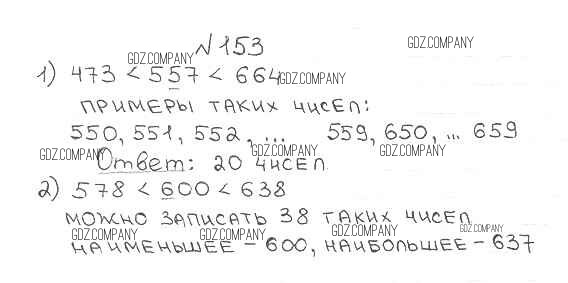 №153
GDZ.COMPANY
GDZ.COMPANY
1) 473 < 557 < 664
GDZ.COMPANY
ПРИМЕРЫ ТАКИХ ЧИСЕЛ:
550, 551, 552, ... 559, 650, ... 659
GDZ.COMPANY GDZ.COMPANY GDZ.COMPANY
Ответ: 20 ЧИСЕЛ
2) 578 < 600 < 638
МОЖНО ЗАПИСАТЬ 38 ТАКИХ ЧИСЕЛ
GDZ.COMPANY GDZ.COMPANY GDZ.COMPANY GDZ.COMPANY
НАИМЕНЬШЕЕ – 600, НАИБОЛЬШЕЕ – 637